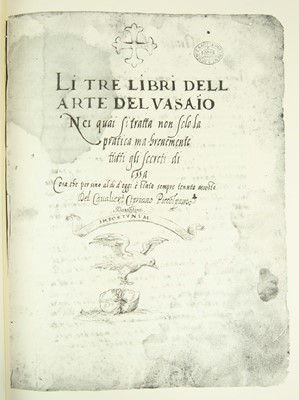 LI TRE LIBRI DELL
ARTE DEL VASAIO
Nei quai si tratta non solo la
pratica ma brevemente
tutti gli secreti di
essa
Cosa che per sino al dì d'oggi è stata sempre tenuta ascosta
Del Cavalier Cipriano Piccolpasso
Durantino
IMPORTUNUM